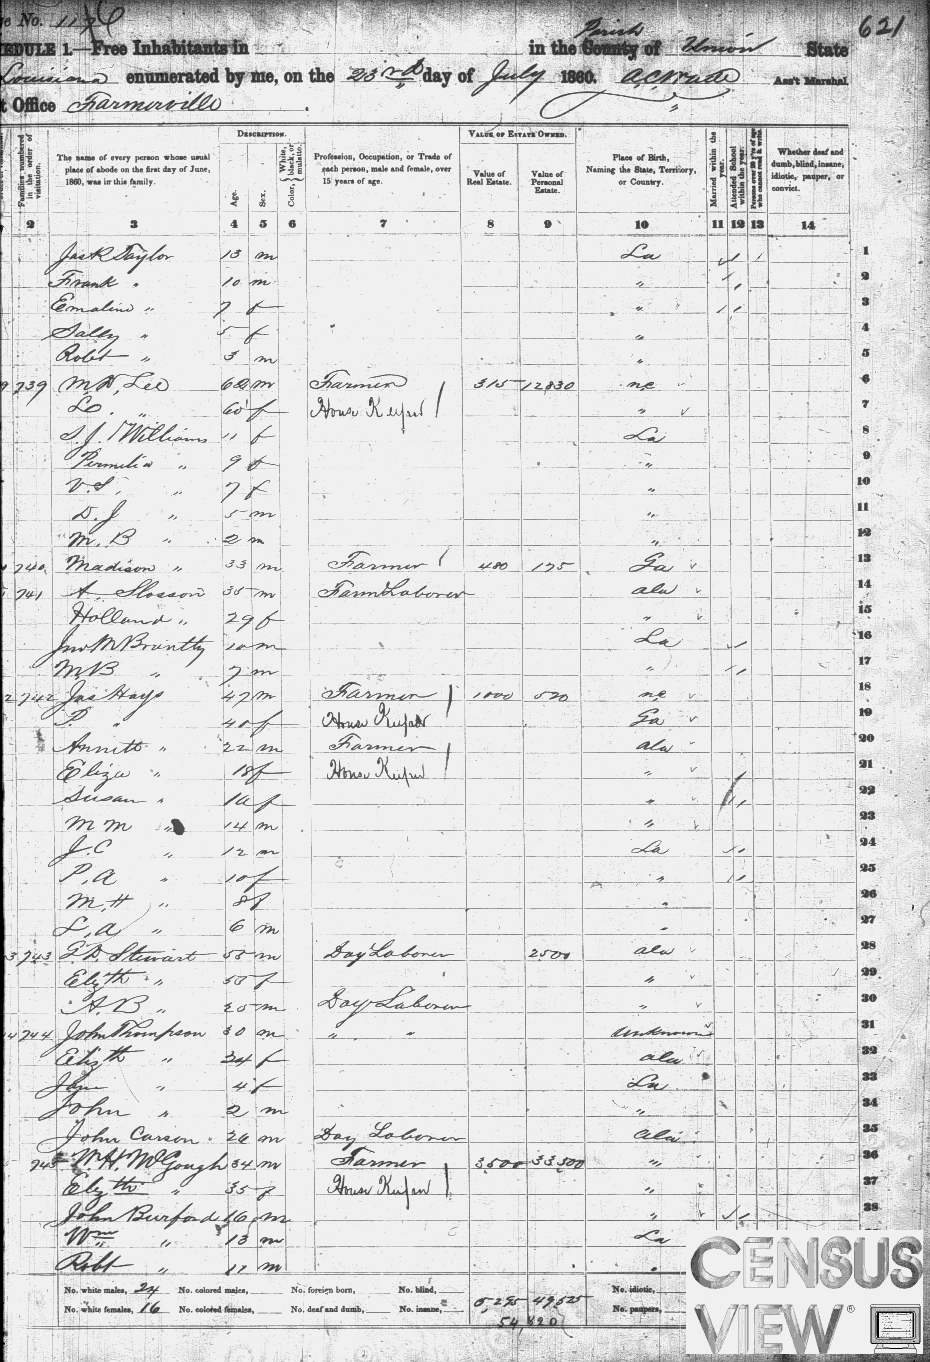 ge No. 117 621
EDULE 1.—Free Inhabitants in in the County of Parish Union State
Louisiana enumerated by me, on the 23rd day of July 1860. A C Wade Ass't Marshal.
t Office Farmerville
DESCRIPTION. VALUE OF ESTATE OWNED.
Families numbered in the order of visitation.
The name of every person whose usual place of abode on the first day of June, 1860, was in this family.
Age. Sex. Color, White, black, or mulatto.
Profession, Occupation, or Trade of each person, male and female, over 15 years of age.
Value of Real Estate. Value of Personal Estate.
Place of Birth, Naming the State, Territory, or Country.
Married within the year. Attended School within the year. Persons over 20 y'rs of age who cannot read & write.
Whether deaf and dumb, blind, insane, idiotic, pauper, or convict.
2 3 4 5 6 7 8 9 10 11 12 13 14
Taylor 13 m La 1
Frank " 10 m " 2
Emaline " 7 f " 3
Sally " 5 f " 4
Robt " 3 m " 5
9 739 Lee m Farmer 315 12830 nc 6
" 60 f House Keeper " 7
S. J. Williams 11 f La 8
Permelia " 9 f " 9
V. S, " 7 f " 10
D. J " 5 m " 11
M. B " 2 m " 12
740 Madison " 33 m Farmer 480 175 Ga 13
741 A. Slosson 35 m Farm Laborer ala 14
Holland " 29 f " 15
Jno M Brantly 10 m La 16
M B " 7 m " 17
2 742 Jas Hays 47 m Farmer 1000 520 nc 18
P. " 40 f House Keeper Ga 19
" 22 m Farmer ala 20
Eliza " 18 f House Keeper " 21
Susan " 16 f " 22
M M " 14 m " 23
J. C " 12 m La 24
P, A " 10 f " 25
M, H " 8 f " 26
L, A " 6 m " 27
3 743 Stewart 55 m Day Laborer 2500 ala 28
Elizth " 55 f " 29
A. B " 20 m Day Laborer " 30
4 744 John Thompson 30 m " " Unknown 31
Elizth " 24 f ala 32
Jane " 4 f La 33
John " 2 m " 34
John Carson 26 m Day Laborer Ala 35
745 W. H. McGough 34 m Farmer 3,500 33,500 " 36
Elizth " 35 f House Keeper " 37
John Burford 16 m " 38
Wm " 13 m La
Robt 11 m "
No. white males, 24 No. colored males, No. foreign born, No. blind, No. idiotic,
No. white females, 16 No. colored females, No. deaf and dumb, No. insane, 5,295 49,525 No. paupers,
54,820
CENSUS
VIEW®